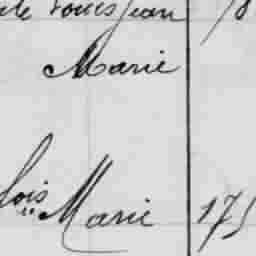 Louis Jean 78
Marie
lois Marie 175